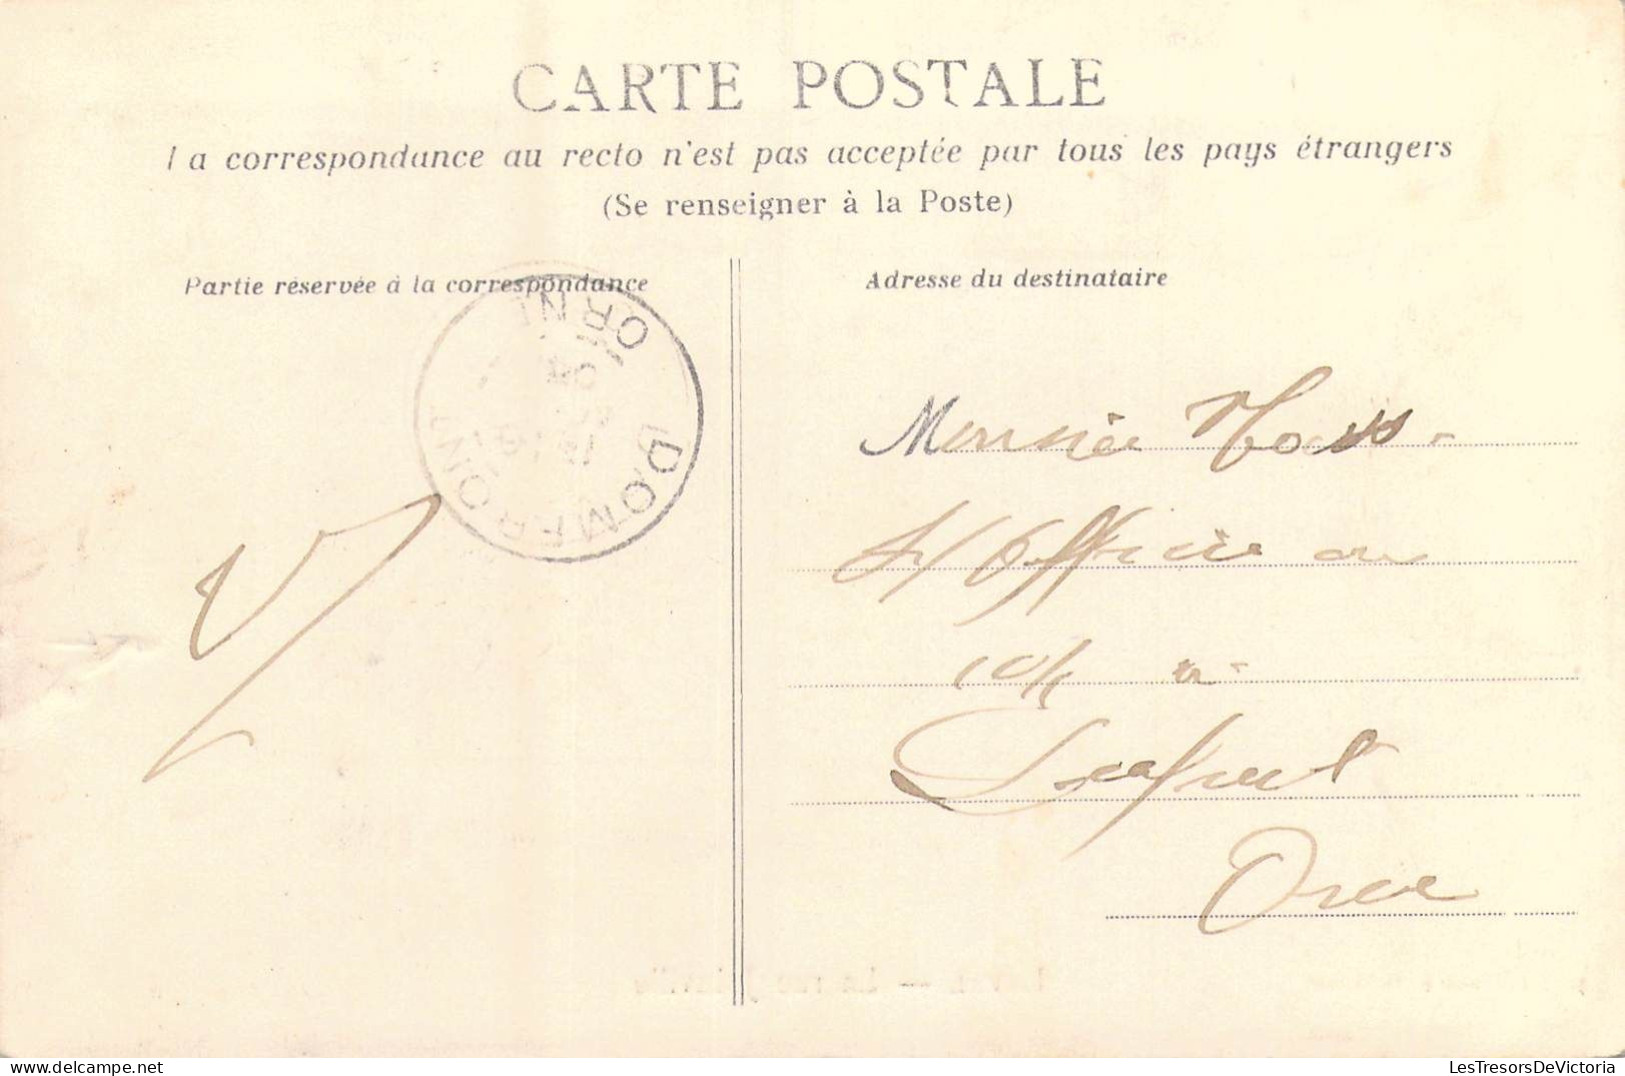 CARTE POSTALE
La correspondance au recto n'est pas acceptée par tous les pays étrangers
(Se renseigner à la Poste)
Partie réservée à la correspondance
Adresse du destinataire
DOMFRONT
ORNE
S/ Officier au
104
Orne
LesTresorsDeVictoria